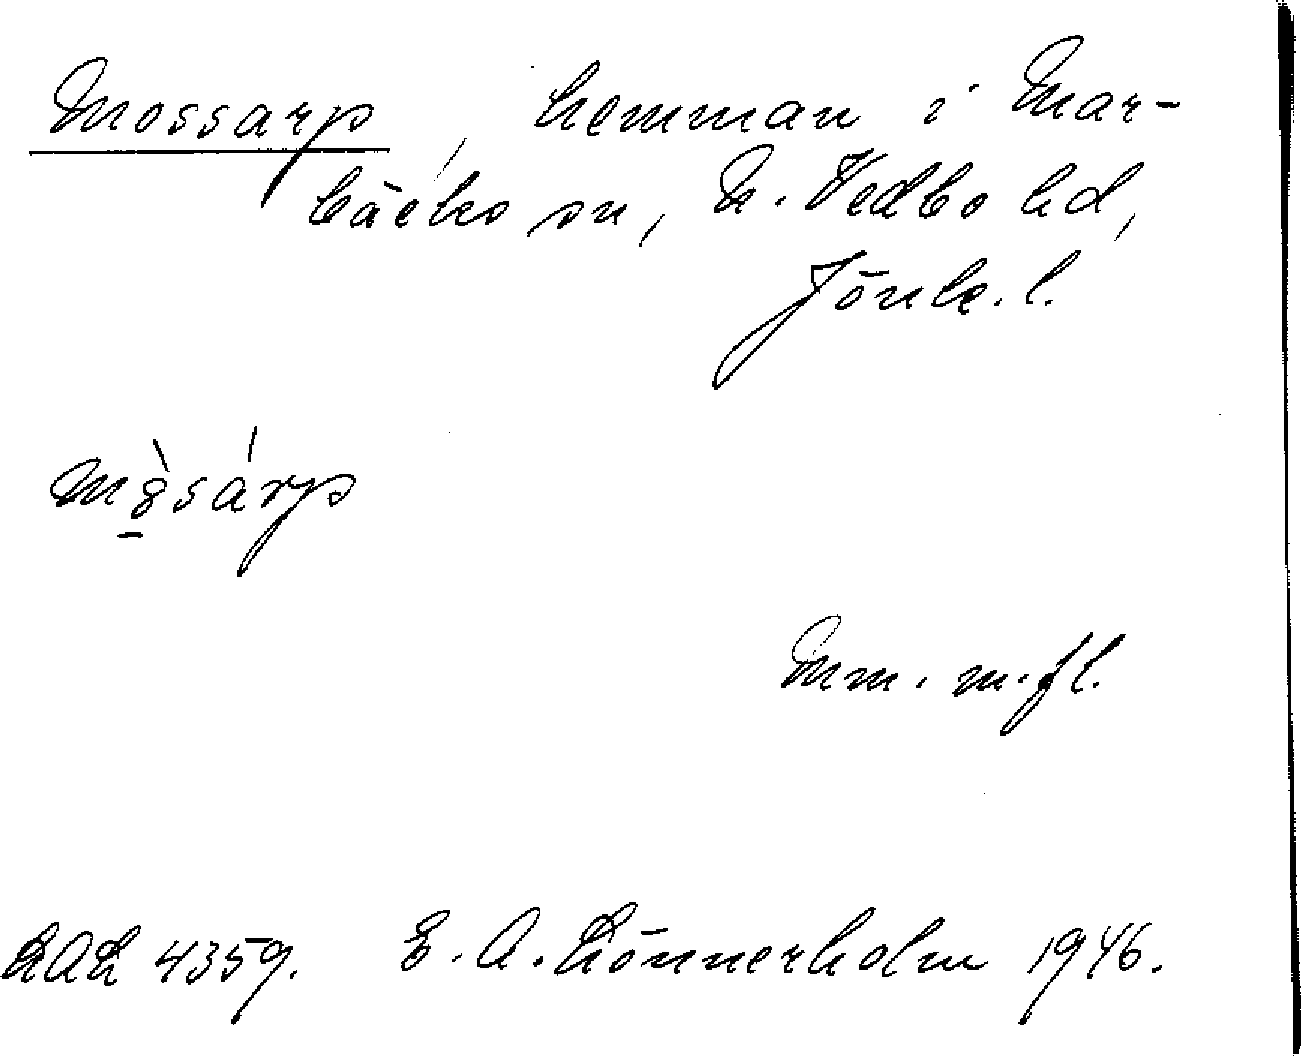 Mossarp, hemman i Mar-
bäcks sn, N. Vedbo hd,
Jönk. l.
mòsárp
Mm. m.fl.
LAL 4359. E. A. Lönnerholm 1946.